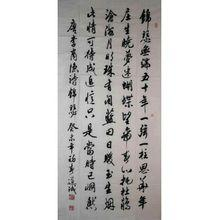 錦瑟無端五十弦一弦一柱思華年
莊生曉夢迷蝴蝶望帝春心托杜鵑
滄海月明珠有淚藍田日暖玉生烟
此情可待成追憶只是當時已惘然
唐李商隱詩錦瑟 癸未年